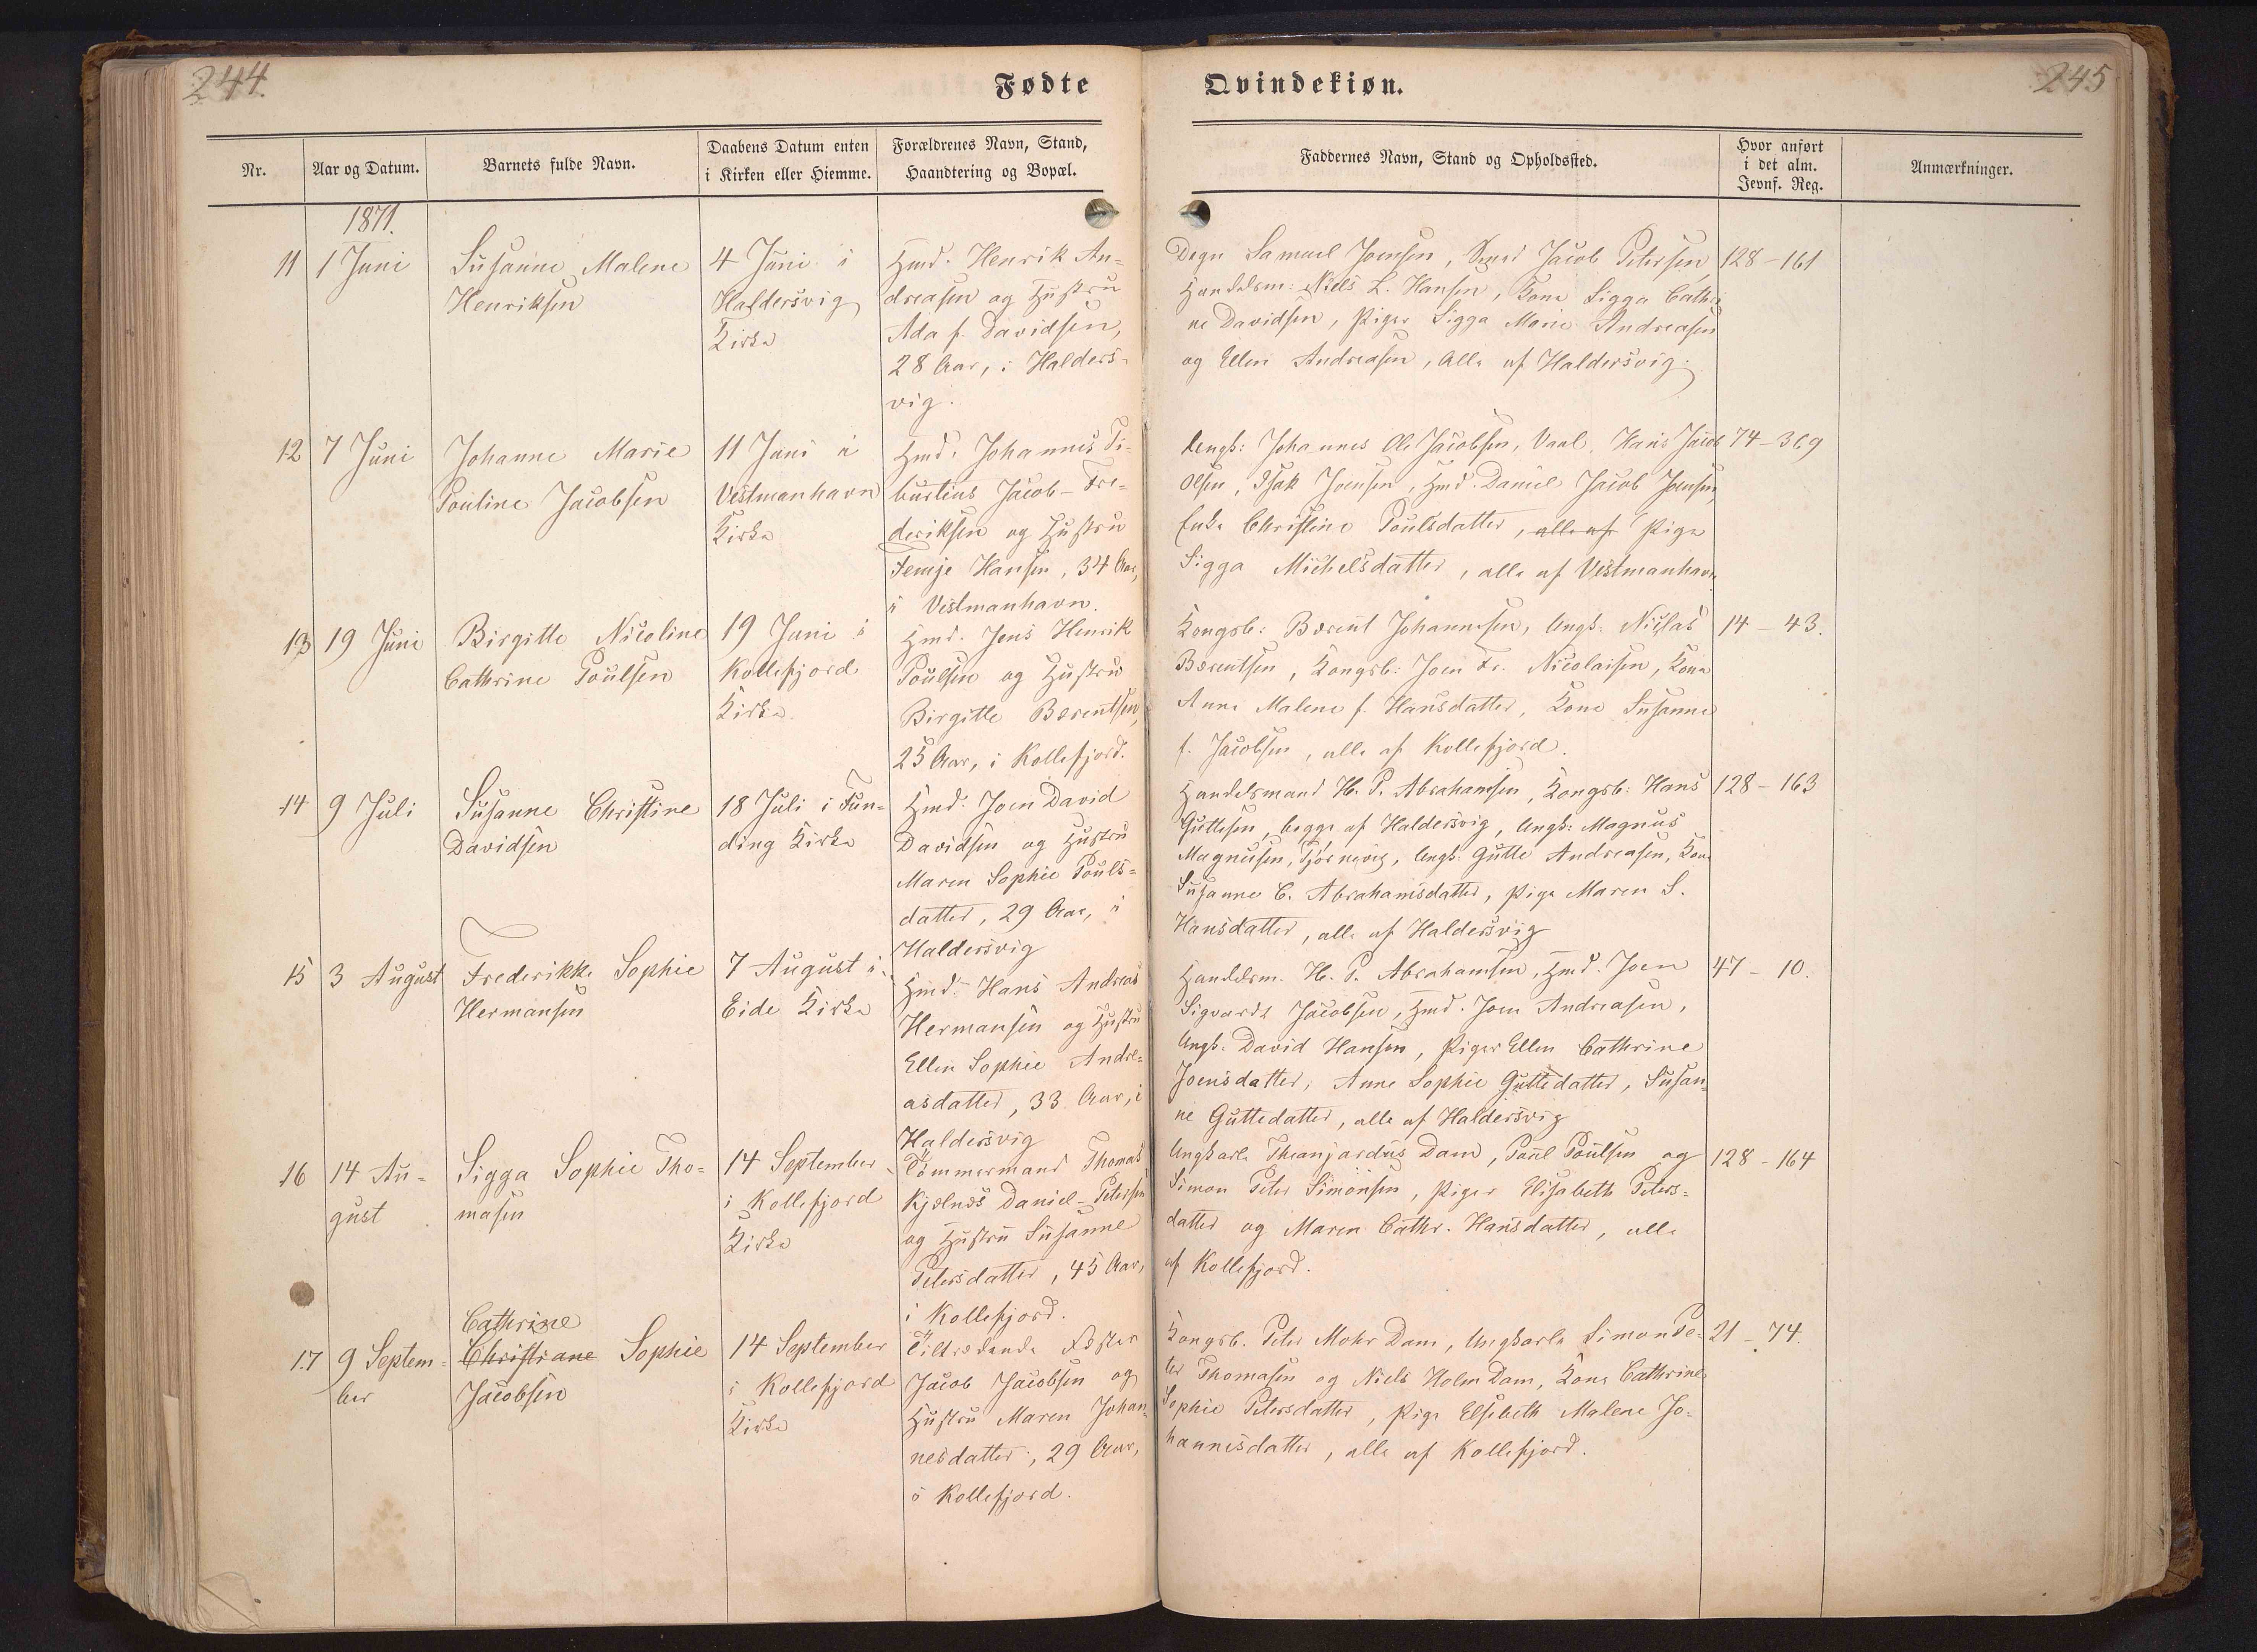 244.
Fødte
Nr.
Aar og Datum.
Barnets fulde Navn.
Daabens Datum enten
i Kirken eller Hiemme.
Forældrenes Navn, Stand,
Haandtering og Bopæl.
1871.
11
1 Juni
Susanne Malene
Henriksen
4 Juni i
Haldersvig
Kirke
Hmd. Henrik An=
dreasen og Hustru
Ada f. Davidsen,
28 Aar, i Halders-
vig.
12
7 Juni
Johanne Marie
Pouline Jacobsen
11 Juni i
Vestmanhavn
Kirke
Hmd. Johannes Ti-
burtius Jacob-Fre-
deriksen og Hustru
Hansen, 34 Aar,
i Vestmanhavn.
13
19 Juni
Birgitte Nicoline
Cathrine Poulsen
19 Juni i
Kollefjord
Kirke.
Hmd. Jens Henrik
Poulsen og Hustru
Birgitte Bærentsen,
25 Aar, i Kollefjord.
14
9 Juli
Susanne Christine
Davidsen
18 Juli i Fun=
ding Kirke
Hmd: Joen David
Davidsen og Hustru
Maren Sophie Pouls=
datter, 29 Aar, i
Haldersvig
15
3 August
Frederikke Sophie
Hermansen
7 August i
Eide Kirke
Hmd: Hans Andreas
Hermansen og Hustru
Ellen Sophie Andre=
asdatter, 33 Aar, i
Haldersvig
16
14 Au-
gust
Sigga Sophie Tho=
masen
14 September
i Kollefjord
Kirke
Tømmermand Thomas
Kjølnæs Daniel-Petersen
og Hustru Susanne
Petersdatter, 45 Aar,
i Kollefjord.
17
9 Septem=
ber
Cathrine
Christiane Sophie
Jacobsen
14 September
i Kollefjord
Kirke
Tiltrædende Fæster
Jacob Jacobsen og
Hustru Maren Johan-
nesdatter, 29 Aar,
i Kollefjord.
245
Qvindekiøn.
Faddernes Navn, Stand og Opholdssted.
Hvor anført
i det alm.
Jevnf. Reg.
Anmærkninger.
Degn Samuel Joensen, Smed Jacob Petersen
Handelsm: Niels L. Hansen, Kone Sigga Cathri
ne Davidsen, Piger Sigga Marie Andreasen
og Ellen Andreasen, Alle af Haldersvig.
128-161
Ungk: Johannes Ole Jacobsen, Vaal, Hans Jacob
Olsen, Isak Joensen, Hmd. Daniel Jacob Joensen,
Enke Christine Poulsdatter, alle af Pige
Sigga Michelsdatter, alle af Vestmanhavn
74-369
Kongsb: Bærent Johannesen, Ungk: Niclas
Bærentsen, Kongsb: Joen Fr. Nicolaisen, Kone
Anne Malene f. Hansdatter, Kone Susanne
f. Jacobsen, alle af Kollefjord.
14-43.
Handelsmand H. P. Abrahamsen, Kongsb: Hans
Guttesen, begge af Haldersvig, Ungk: Magnus
Magnusen, Tjørnevig, Ungk: Gutte Andreasen, Kone
Susanne C. Abrahamsdatter, Pige Maren S.
Hansdatter, alle af Haldersvig
128-163
Handelsm. H. P. Abrahamsen, Hmd. Joen
Sigvardt Jacobsen, Hmd. Joen Andreasen,
Ungk. David Hansen, Piger Ellen Cathrine
Joensdatter, Anne Sophie Guttedatter, Susan=
ne Guttedatter, alle af Haldersvig
47-10.
Ungkarle Dam, Poul Poulsen og
Simon Peter Simonsen, Piger Elisabeth Peters=
datter og Maren Cathr. Hansdatter, alle
af Kollefjord.
128-164
Kongsb. Peter Mohr Dam, Ungkarle Simon Pe=
ter Thomasen og Niels Holm Dam, Kone Cathrine
Sophie Petersdatter, Pige Elsebeth Malene Jo=
hannesdatter, alle af Kollefjord.
21-74.